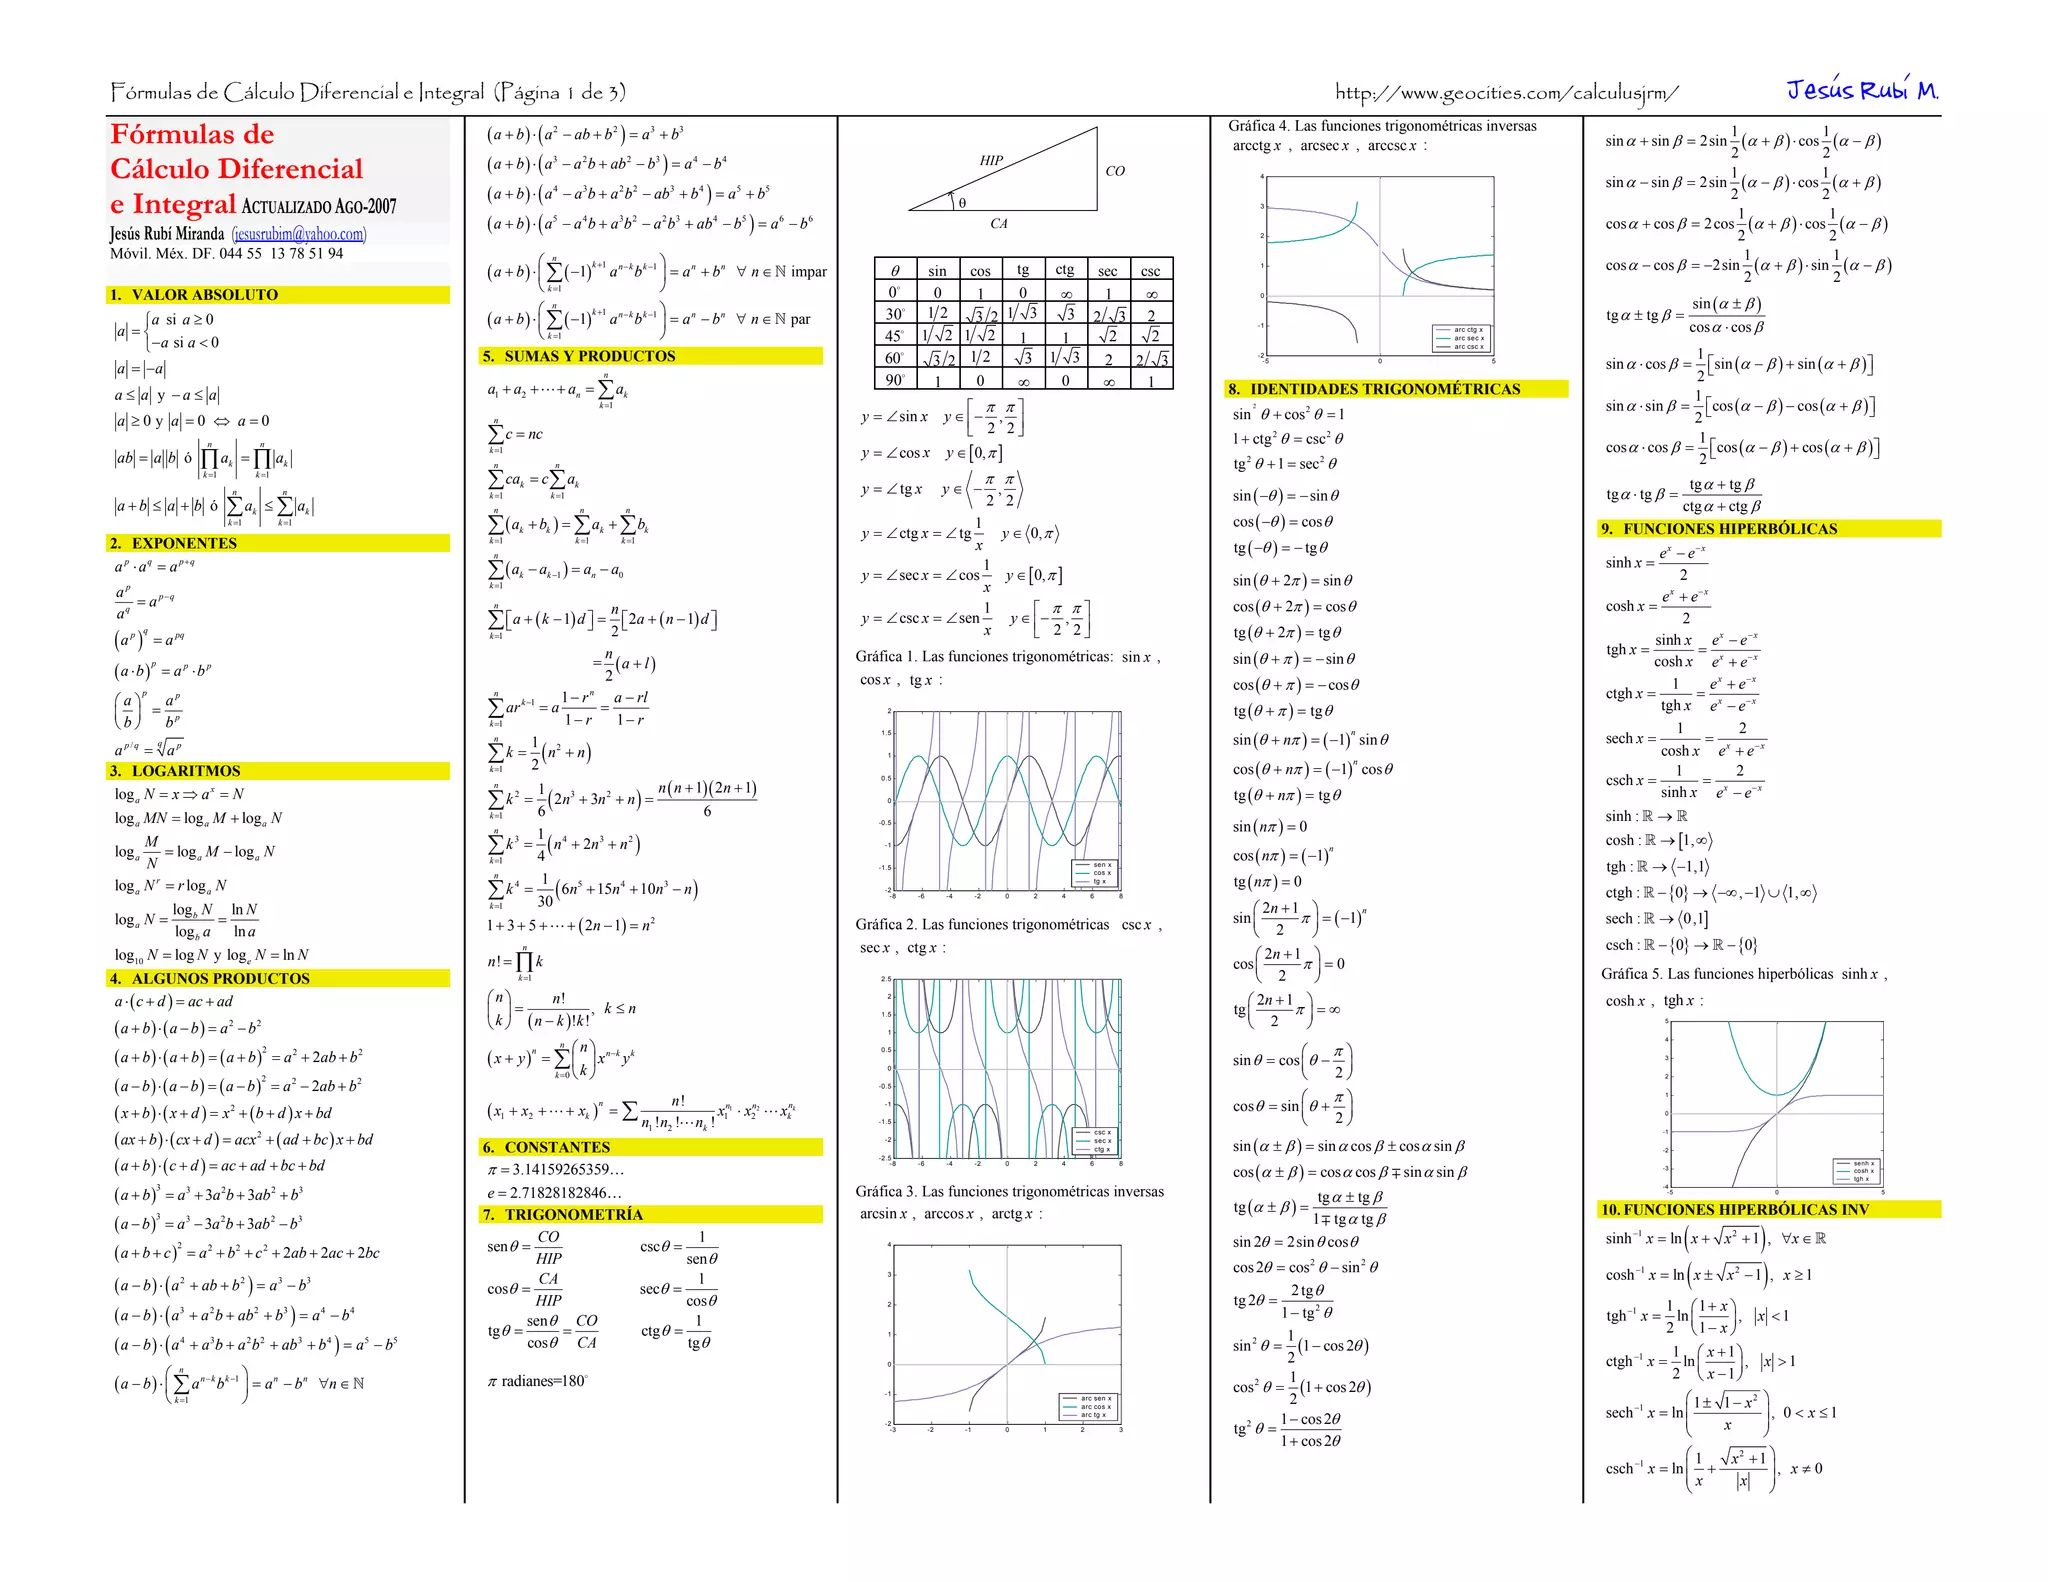 Fórmulas de Cálculo Diferencial e Integral (Página 1 de 3) http://www.geocities.com/calculusjrm/ Jesús Rubí M.
Fórmulas de
Cálculo Diferencial
e Integral ACTUALIZADO AGO-2007
Jesús Rubí Miranda (jesusrubim@yahoo.com)
Móvil. Méx. DF. 044 55 13 78 51 94
1. VALOR ABSOLUTO
|a| = { a si a ≥ 0
−a si a < 0
|a| = |−a|
a ≤ |a| y −a ≤ |a|
|a| ≥ 0 y |a| = 0 ⇔ a = 0
|ab| = |a||b| ó |∏_{k=1}^{n} a_k| = ∏_{k=1}^{n} |a_k|
|a + b| ≤ |a| + |b| ó |∑_{k=1}^{n} a_k| ≤ ∑_{k=1}^{n} |a_k|
2. EXPONENTES
a^p · a^q = a^{p+q}
a^p / a^q = a^{p−q}
(a^p)^q = a^{pq}
(a · b)^p = a^p · b^p
(a/b)^p = a^p / b^p
a^{p/q} = ^q√a^p
3. LOGARITMOS
log_a N = x ⇒ a^x = N
log_a MN = log_a M + log_a N
log_a M/N = log_a M − log_a N
log_a N^r = r log_a N
log_a N = log_b N / log_b a = ln N / ln a
log_10 N = log N y log_e N = ln N
4. ALGUNOS PRODUCTOS
a · (c + d) = ac + ad
(a + b) · (a − b) = a² − b²
(a + b) · (a + b) = (a + b)² = a² + 2ab + b²
(a − b) · (a − b) = (a − b)² = a² − 2ab + b²
(x + b) · (x + d) = x² + (b + d) x + bd
(ax + b) · (cx + d) = acx² + (ad + bc) x + bd
(a + b) · (c + d) = ac + ad + bc + bd
(a + b)³ = a³ + 3a²b + 3ab² + b³
(a − b)³ = a³ − 3a²b + 3ab² − b³
(a + b + c)² = a² + b² + c² + 2ab + 2ac + 2bc
(a − b) · (a² + ab + b²) = a³ − b³
(a − b) · (a³ + a²b + ab² + b³) = a⁴ − b⁴
(a − b) · (a⁴ + a³b + a²b² + ab³ + b⁴) = a⁵ − b⁵
(a − b) · (∑_{k=1}^{n} a^{n−k} b^{k−1}) = a^n − b^n ∀n ∈ ℕ
(a + b) · (a² − ab + b²) = a³ + b³
(a + b) · (a³ − a²b + ab² − b³) = a⁴ − b⁴
(a + b) · (a⁴ − a³b + a²b² − ab³ + b⁴) = a⁵ + b⁵
(a + b) · (a⁵ − a⁴b + a³b² − a²b³ + ab⁴ − b⁵) = a⁶ − b⁶
(a + b) · (∑_{k=1}^{n} (−1)^{k+1} a^{n−k} b^{k−1}) = a^n + b^n ∀ n ∈ ℕ impar
(a + b) · (∑_{k=1}^{n} (−1)^{k+1} a^{n−k} b^{k−1}) = a^n − b^n ∀ n ∈ ℕ par
5. SUMAS Y PRODUCTOS
a₁ + a₂ + ⋯ + a_n = ∑_{k=1}^{n} a_k
∑_{k=1}^{n} c = nc
∑_{k=1}^{n} ca_k = c ∑_{k=1}^{n} a_k
∑_{k=1}^{n} (a_k + b_k) = ∑_{k=1}^{n} a_k + ∑_{k=1}^{n} b_k
∑_{k=1}^{n} (a_k − a_{k−1}) = a_n − a_0
∑_{k=1}^{n} [a + (k − 1) d] = n/2 [2a + (n − 1) d]
= n/2 (a + l)
∑_{k=1}^{n} ar^{k−1} = a (1 − r^n)/(1 − r) = (a − rl)/(1 − r)
∑_{k=1}^{n} k = 1/2 (n² + n)
∑_{k=1}^{n} k² = 1/6 (2n³ + 3n² + n) = n(n + 1)(2n + 1)/6
∑_{k=1}^{n} k³ = 1/4 (n⁴ + 2n³ + n²)
∑_{k=1}^{n} k⁴ = 1/30 (6n⁵ + 15n⁴ + 10n³ − n)
1 + 3 + 5 + ⋯ + (2n − 1) = n²
n! = ∏_{k=1}^{n} k
(n k) = n! / (n − k)!k!, k ≤ n
(x + y)^n = ∑_{k=0}^{n} (n k) x^{n−k} y^k
(x₁ + x₂ + ⋯ + x_k)^n = ∑ n! / (n₁!n₂!⋯n_k!) x₁^{n₁} · x₂^{n₂} ⋯ x_k^{n_k}
6. CONSTANTES
π = 3.14159265359…
e = 2.71828182846…
7. TRIGONOMETRÍA
senθ = CO/HIP cscθ = 1/senθ
cosθ = CA/HIP secθ = 1/cosθ
tgθ = senθ/cosθ = CO/CA ctgθ = 1/tgθ
π radianes=180°
HIP
CO
θ
CA
θ sin cos tg ctg sec csc
0° 0 1 0 ∞ 1 ∞
30° 1/2 √3/2 1/√3 √3 2/√3 2
45° 1/√2 1/√2 1 1 √2 √2
60° √3/2 1/2 √3 1/√3 2 2/√3
90° 1 0 ∞ 0 ∞ 1
y = ∠sin x y ∈ [−π/2, π/2]
y = ∠cos x y ∈ [0, π]
y = ∠tg x y ∈ ⟨−π/2, π/2⟩
y = ∠ctg x = ∠tg 1/x y ∈ ⟨0, π⟩
y = ∠sec x = ∠cos 1/x y ∈ [0, π]
y = ∠csc x = ∠sen 1/x y ∈ [−π/2, π/2]
Gráfica 1. Las funciones trigonométricas: sin x ,
cos x , tg x :
2
1.5
1
0.5
0
-0.5
-1
-1.5
-2
-8 -6 -4 -2 0 2 4 6 8
sen x
cos x
tg x
Gráfica 2. Las funciones trigonométricas csc x ,
sec x , ctg x :
2.5
2
1.5
1
0.5
0
-0.5
-1
-1.5
-2
-2.5
-8 -6 -4 -2 0 2 4 6 8
csc x
sec x
ctg x
Gráfica 3. Las funciones trigonométricas inversas
arcsin x , arccos x , arctg x :
4
3
2
1
0
-1
-2
-3 -2 -1 0 1 2 3
arc sen x
arc cos x
arc tg x
Gráfica 4. Las funciones trigonométricas inversas
arcctg x , arcsec x , arccsc x :
4
3
2
1
0
-1
-2
-5 0 5
arc ctg x
arc sec x
arc csc x
8. IDENTIDADES TRIGONOMÉTRICAS
sin² θ + cos² θ = 1
1 + ctg² θ = csc² θ
tg² θ + 1 = sec² θ
sin(−θ) = −sinθ
cos(−θ) = cosθ
tg(−θ) = −tgθ
sin(θ + 2π) = sinθ
cos(θ + 2π) = cosθ
tg(θ + 2π) = tgθ
sin(θ + π) = −sinθ
cos(θ + π) = −cosθ
tg(θ + π) = tgθ
sin(θ + nπ) = (−1)^n sinθ
cos(θ + nπ) = (−1)^n cosθ
tg(θ + nπ) = tgθ
sin(nπ) = 0
cos(nπ) = (−1)^n
tg(nπ) = 0
sin((2n + 1)/2 π) = (−1)^n
cos((2n + 1)/2 π) = 0
tg((2n + 1)/2 π) = ∞
sinθ = cos(θ − π/2)
cosθ = sin(θ + π/2)
sin(α ± β) = sinα cos β ± cosα sin β
cos(α ± β) = cosα cos β ∓ sinα sin β
tg(α ± β) = (tgα ± tg β)/(1 ∓ tgα tg β)
sin 2θ = 2sinθ cosθ
cos 2θ = cos² θ − sin² θ
tg 2θ = 2 tgθ/(1 − tg² θ)
sin² θ = 1/2 (1 − cos 2θ)
cos² θ = 1/2 (1 + cos 2θ)
tg² θ = (1 − cos 2θ)/(1 + cos 2θ)
sinα + sin β = 2sin 1/2 (α + β) · cos 1/2 (α − β)
sinα − sin β = 2sin 1/2 (α − β) · cos 1/2 (α + β)
cosα + cos β = 2cos 1/2 (α + β) · cos 1/2 (α − β)
cosα − cos β = −2sin 1/2 (α + β) · sin 1/2 (α − β)
tgα ± tg β = sin(α ± β)/(cosα · cos β)
sinα · cos β = 1/2 [sin(α − β) + sin(α + β)]
sinα · sin β = 1/2 [cos(α − β) − cos(α + β)]
cosα · cos β = 1/2 [cos(α − β) + cos(α + β)]
tgα · tg β = (tgα + tg β)/(ctgα + ctg β)
9. FUNCIONES HIPERBÓLICAS
sinh x = (e^x − e^{−x})/2
cosh x = (e^x + e^{−x})/2
tgh x = sinh x/cosh x = (e^x − e^{−x})/(e^x + e^{−x})
ctgh x = 1/tgh x = (e^x + e^{−x})/(e^x − e^{−x})
sech x = 1/cosh x = 2/(e^x + e^{−x})
csch x = 1/sinh x = 2/(e^x − e^{−x})
sinh : ℝ → ℝ
cosh : ℝ → [1, ∞⟩
tgh : ℝ → ⟨−1, 1⟩
ctgh : ℝ − {0} → ⟨−∞, −1⟩ ∪ ⟨1, ∞⟩
sech : ℝ → ⟨0, 1]
csch : ℝ − {0} → ℝ − {0}
Gráfica 5. Las funciones hiperbólicas sinh x ,
cosh x , tgh x :
5
4
3
2
1
0
-1
-2
-3
-4
-5 0 5
senh x
cosh x
tgh x
10. FUNCIONES HIPERBÓLICAS INV
sinh⁻¹ x = ln(x + √(x² + 1)), ∀x ∈ ℝ
cosh⁻¹ x = ln(x ± √(x² − 1)), x ≥ 1
tgh⁻¹ x = 1/2 ln((1 + x)/(1 − x)), |x| < 1
ctgh⁻¹ x = 1/2 ln((x + 1)/(x − 1)), |x| > 1
sech⁻¹ x = ln((1 ± √(1 − x²))/x), 0 < x ≤ 1
csch⁻¹ x = ln(1/x + √(x² + 1)/|x|), x ≠ 0